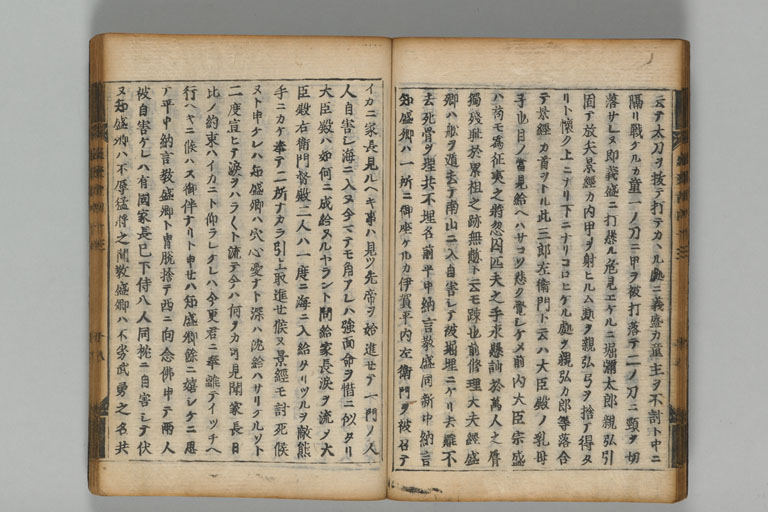 云テ太刀ヲ抜テ打テカヽル処ニ義盛カ童主ヲ不討ト中ニ
隔リ戦ケルカ童一ノ刀ニ甲ヲ被打落テ二ノ刀ニ頸ヲ切
落サレヌ即義盛ニ打懸ル危見エケルニ堀彌太郎親弘引
固テ放矢景経カ内甲ヲ射ヒルム処ヲ親弘弓ヲ捨テ得タ
リト懐ク上ニナリ下ニナリコロヒケル処ヲ親弘カ郎等落合
テ景経カ首ヲトル此三郎左衛門ト云ハ大臣殿ノ乳母
子也目ノ当見給ヘハサコソ悲ク覚シケメ前内大臣宗盛
ハ苟モ為征夷之将忽囚匹夫之手永懸訕於萬人之脣
獨残耻於累祖之跡無慙ト云モ疎也前修理大夫経盛
卿ハ舩ヲ遁去テ南山ニ入自害シテ被堀埋ニケリ夫雖不
去死骨ヲ埋共不埋名前平中納言教盛同新中納言
知盛卿ハ一所ニ御座ケルカ伊賀平内左衛門ヲ被召テ
イカニ家長見ルヘキ事ハ見ツ先帝ヲ始進セテ一門ノ人
人自害シ海ニ入ヌ今マテモ角アレハ強面命ヲ惜ニ似タリ
大臣殿ハ如何ニ成給ヌルヤラント問給家長涙ヲ流メ大
臣殿右衛門督殿二人ハ一度ニ海ニ入給タリツルヲ敵熊
手ニカケ奉テ二所ナカラ引上取進セ候ヌ景経モ討死候
ヌト申ケレハ知盛卿ハ穴心憂ナト深ハ沈給ハサリケルソト
二度宣ヒテ涙ヲハラハラト流テ今ハ何ヲカ可見聞家長日
比ノ約束ハイカニト仰ラレケレハ今更君ニ奉離テイツチヘ
行ヘキニ候ハス御伴ナリト申セハ知盛卿餘ニ嬉シケニ思
テ平中納言教盛卿ト冑脱捨テ西ニ向念佛申テ兩人
被自害ケレハ有國家長已下侍八人同枕ニ自害シテ伏
ヌ知盛卿ハ不辱猛将之聞教盛卿ハ不劣武勇之名共